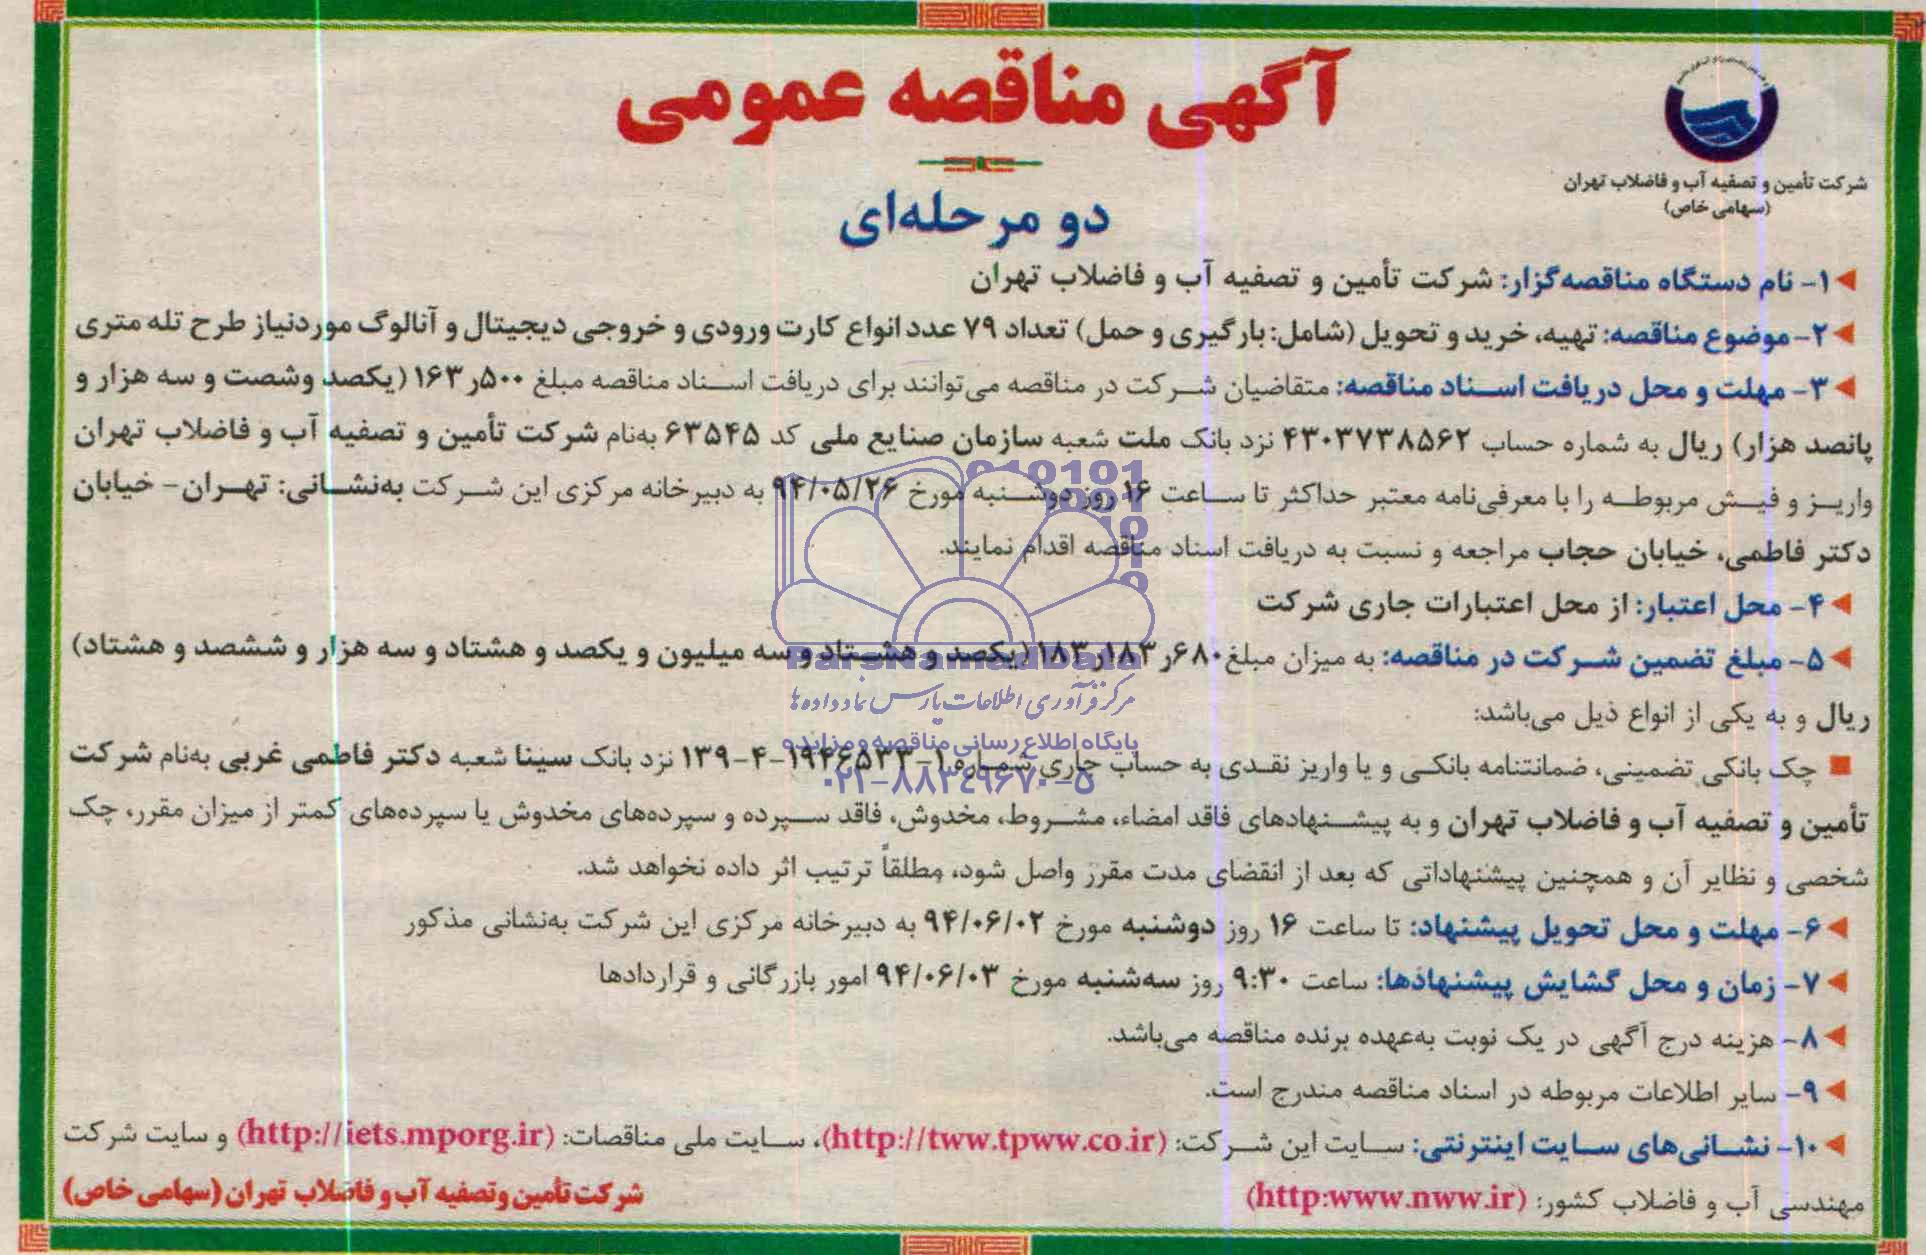 آگهی مناقصه عمومی
شرکت تأمین و تصفیه آب و فاضلاب تهران
(سهامی خاص)
دو مرحله‌ای
۱- نام دستگاه مناقصه‌گزار: شرکت تأمین و تصفیه آب و فاضلاب تهران
۲- موضوع مناقصه: تهیه، خرید و تحویل (شامل: بارگیری و حمل) تعداد ۷۹ عدد انواع کارت ورودی و خروجی دیجیتال و آنالوگ موردنیاز طرح تله متری
۳- مهلت و محل دریافت اسناد مناقصه: متقاضیان شرکت در مناقصه می‌توانند برای دریافت اسناد مناقصه مبلغ ۱۶۳٫۵۰۰ (یکصد وشصت و سه هزار و
پانصد هزار) ریال به شماره حساب ۴۳۰۳۷۳۸۵۶۲ نزد بانک ملت شعبه سازمان صنایع ملی کد ۶۳۵۴۵ به‌نام شرکت تأمین و تصفیه آب و فاضلاب تهران
واریز و فیش مربوطه را با معرفی‌نامه معتبر حداکثر تا ساعت ۱۶ روز دوشنبه مورخ ۹۴/۰۵/۲۶ به دبیرخانه مرکزی این شرکت به‌نشانی: تهران- خیابان
دکتر فاطمی، خیابان حجاب مراجعه و نسبت به دریافت اسناد مناقصه اقدام نمایند.
۴- محل اعتبار: از محل اعتبارات جاری شرکت
۵- مبلغ تضمین شرکت در مناقصه: به میزان مبلغ ۱۸۳٫۱۸۳٫۶۸۰ (یکصد و هشتاد و سه میلیون و یکصد و هشتاد و سه هزار و ششصد و هشتاد)
مرکز فرآوری اطلاعات پارس نماد داده‌ها
ریال و به یکی از انواع ذیل می‌باشد:
پایگاه اطلاع رسانی مناقصه و مزایده
چک بانکی تضمینی، ضمانتنامه بانکی و یا واریز نقدی به حساب جاری شماره ۱-۱۹۴۶۵۳۳-۴-۱۳۹ نزد بانک سینا شعبه دکتر فاطمی غربی به‌نام شرکت
۰۲۱-۸۸۳۴۹۶۷۰-۵
تأمین و تصفیه آب و فاضلاب تهران و به پیشنهادهای فاقد امضاء، مشروط، مخدوش، فاقد سپرده و سپرده‌های مخدوش یا سپرده‌های کمتر از میزان مقرر، چک
شخصی و نظایر آن و همچنین پیشنهاداتی که بعد از انقضای مدت مقرر واصل شود، مطلقاً ترتیب اثر داده نخواهد شد.
۶- مهلت و محل تحویل پیشنهاد: تا ساعت ۱۶ روز دوشنبه مورخ ۹۴/۰۶/۰۲ به دبیرخانه مرکزی این شرکت به‌نشانی مذکور
۷- زمان و محل گشایش پیشنهادها: ساعت ۹:۳۰ روز سه‌شنبه مورخ ۹۴/۰۶/۰۳ امور بازرگانی و قراردادها
۸- هزینه درج آگهی در یک نوبت به‌عهده برنده مناقصه می‌باشد.
۹- سایر اطلاعات مربوطه در اسناد مناقصه مندرج است.
۱۰- نشانی‌های سایت اینترنتی: سایت این شرکت: (http://tww.tpww.co.ir)، سایت ملی مناقصات: (http://iets.mporg.ir) و سایت شرکت
مهندسی آب و فاضلاب کشور: (http:www.nww.ir)
شرکت تأمین و تصفیه آب و فاضلاب تهران (سهامی خاص)